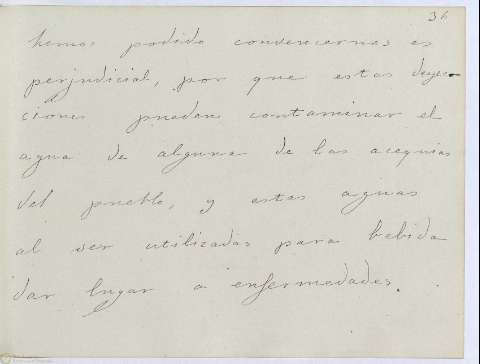 36
hemos podido convencernos es
perjudicial, por que estas deyec-
ciones pueden contaminar el
agua de alguna de las acequias
del pueblo, y estas aguas
al ser utilizadas para bebida
dar lugar a enfermedades.